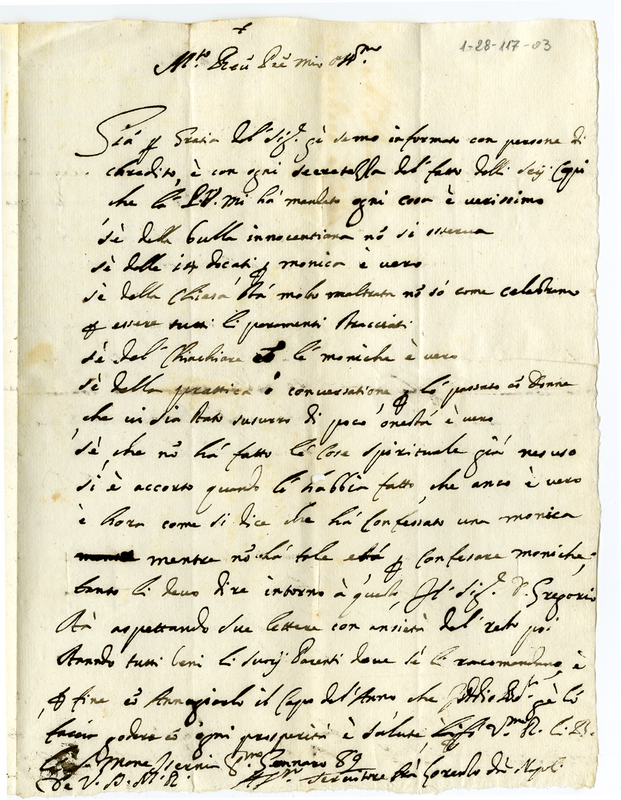 1-28-117-03
+
M.to Reu Pre mio
Già p gratia del Sig.r gè semo informato con persone di
chredito, è con ogni secretessa del fatto delli seij Capi
che la P.V. mi hà mandato ogni cosa è verissimo
sè della bulla innocentiana nō si osserva
sè delle docati p monica è vero
sè della Chiesa stà molto maltrata nō sò come celebrano
p essere tutti li paramenti stracciati
sè del Chiachiare cō le moniche è vero
sè della prattica è conversatione p lo passato cō donne
che vi sia stato susurro di poco onestà è vero
sè, che nō hà fatto le cose spirituale già nesuno
si è accorto quando le habbia fatto, che anco è vero
è hora come si dice che hà confessato una monica
mentre nō hà tale età p confesare moniche,
tanto li devo dire intorno à questo, Il Sig.r D. Gregorio
stà aspettando sue lettere con ansietà del resto poi
stando tutti beni li suoij Parenti dove sè li racomandano, è
p fine cō il Capo del'Anno che Iddio gè lo
faccia godere cō ogni prosperità è salute V. R. li B.
Isernia Gennaro 89
De V. P. M. R. servitore frà